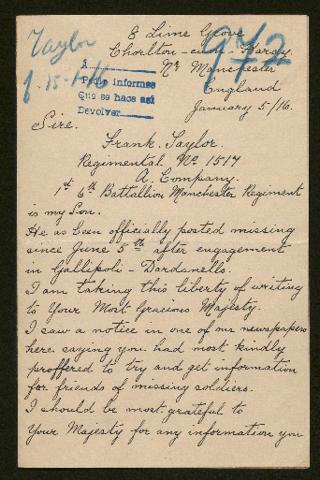 8 Lime Grove
Taylor
Chorlton-cum-Hardy.
Nr Manchester
England
942
A
Pedir informes
Que se hace así
Devolver
15-1-16
January 5/16.
Sire.
Frank. Taylor.
Regimental. No 1517
A. Company.
1st 6th Battallion Manchester Regiment
is my Son.
He as been officially posted missing
since June 5th after engagement
in Gallipoli - Dardanells.
I am taking this liberty of writing
to Your Most Gracious Majesty.
I saw a notice in one of our newspapers
here saying you had most kindly
proffered to try and get information
for friends of missing soldiers.
I should be most grateful to
Your Majesty for any information you